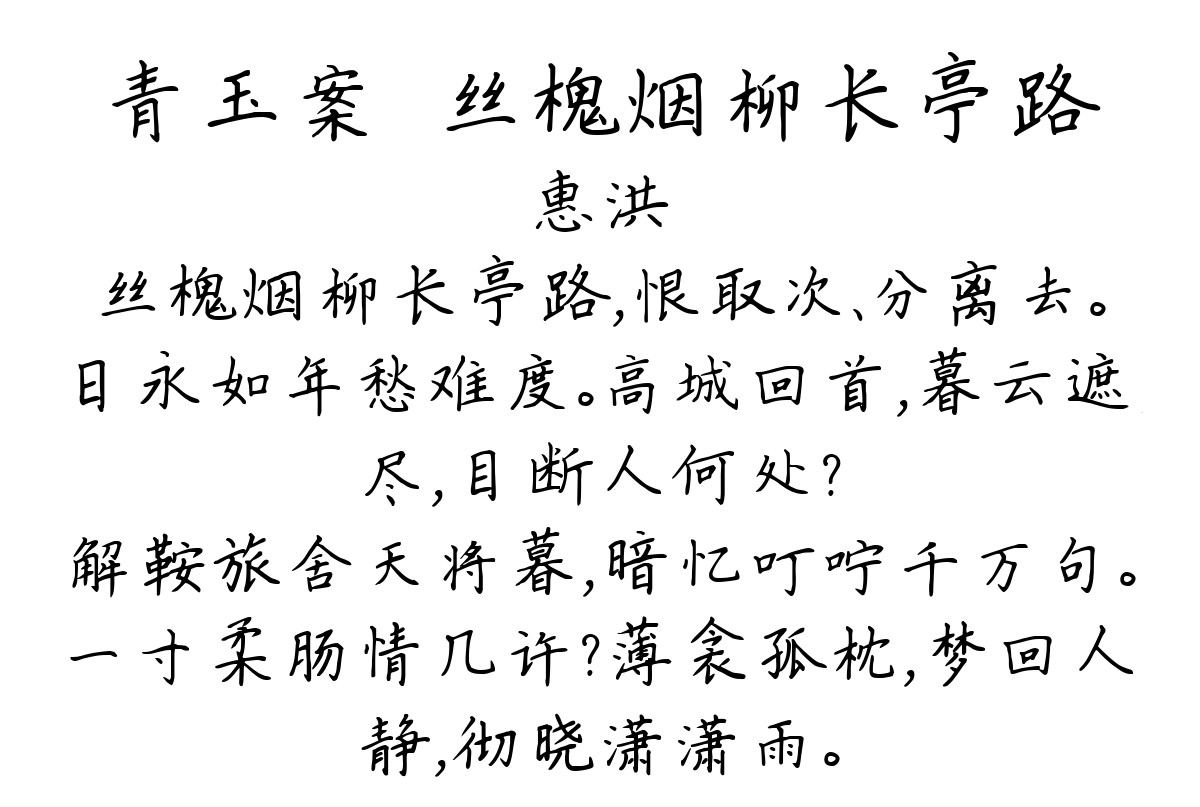 青玉案 丝槐烟柳长亭路
惠洪
丝槐烟柳长亭路,恨取次、分离去。
日永如年愁难度。高城回首,暮云遮
尽,目断人何处?
解鞍旅舍天将暮,暗忆叮咛千万句。
一寸柔肠情几许?薄衾孤枕,梦回人
静,彻晓潇潇雨。